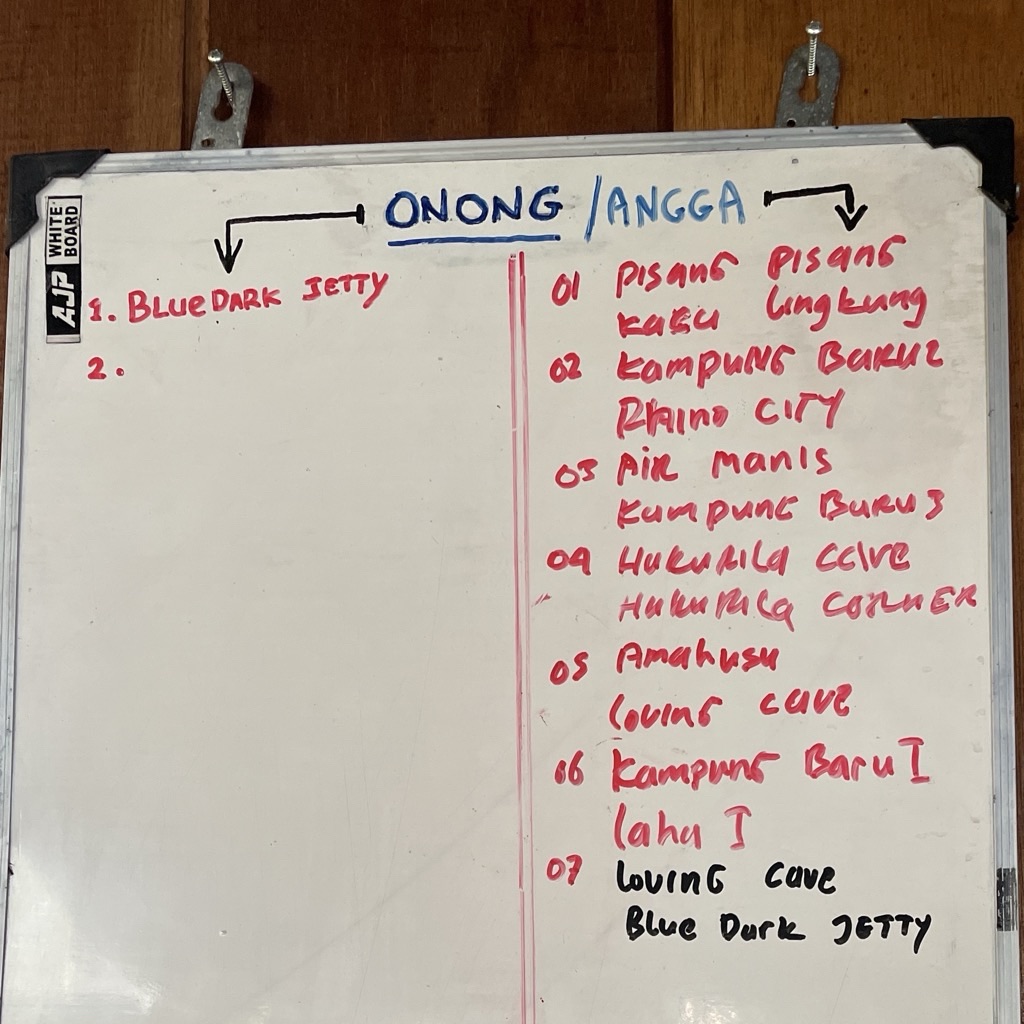 AJP WHITE BOARD
ONONG / ANGGA
1. BLUE DARK JETTY
2.
01 PISANG PISANG
KAKU lingkung
02 KAMPUNG BARU 2
RHINO CITY
03 AIR MANIS
KAMPUNG BARU 3
04 HUKURILA CAVE
HUKURILA CORNER
05 Amahusu
Loving cave
06 Kampung Baru I
laha I
07 Loving cave
Blue Dark JETTY